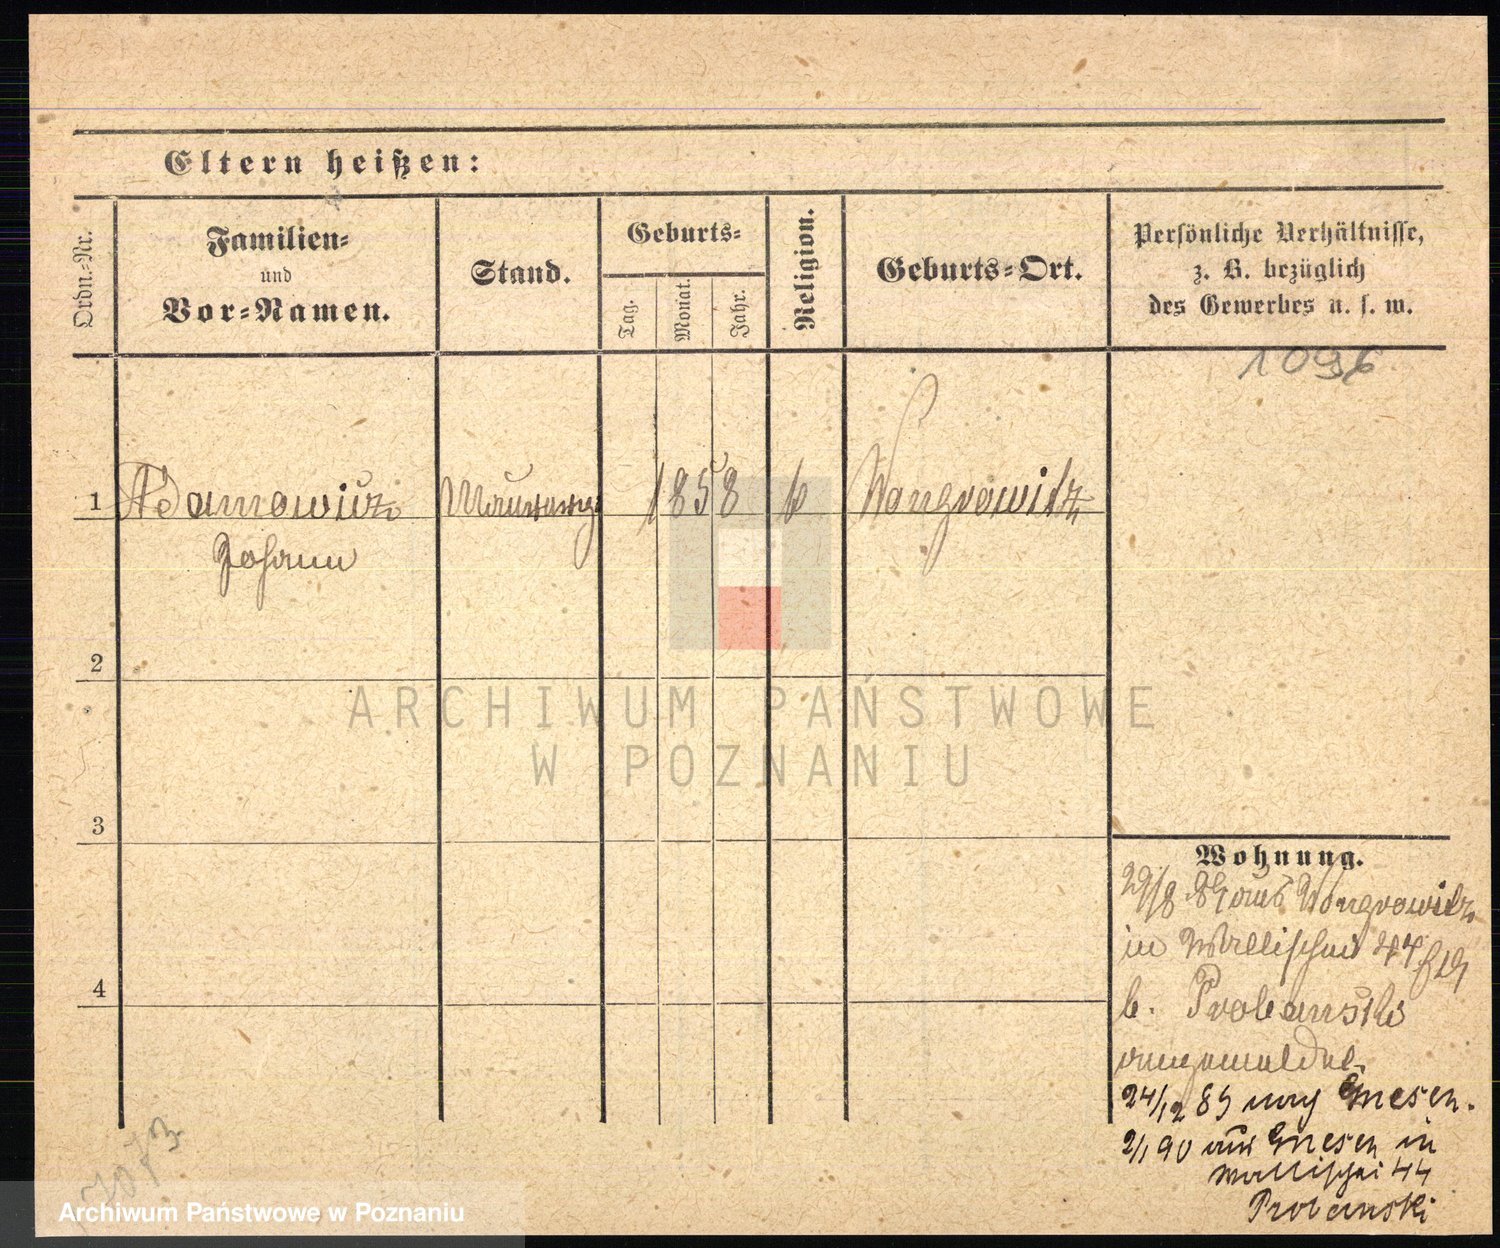 Eltern heißen:
Ordn.-Nr.
Familien-
und
Vor-Namen.
Stand.
Geburts-
Tag.
Monat.
Jahr.
Religion.
Geburts-Ort.
Persönliche Verhältnisse,
z. B. bezüglich
des Gewerbes u. s. w.
1096
1 Adamowicz 1858 k Wongrowitz
Johann
2
3
4
Wohnung.
29/8 89 aus Wongrowitz
in Wallischei 44
b. Probanski
angemeldet.
24/12 89 nach Gnesen.
2/1 90 aus Gnesen in
Wallischei 44
Probanski
ARCHIWUM PAŃSTWOWE
W POZNANIU
Archiwum Państwowe w Poznaniu